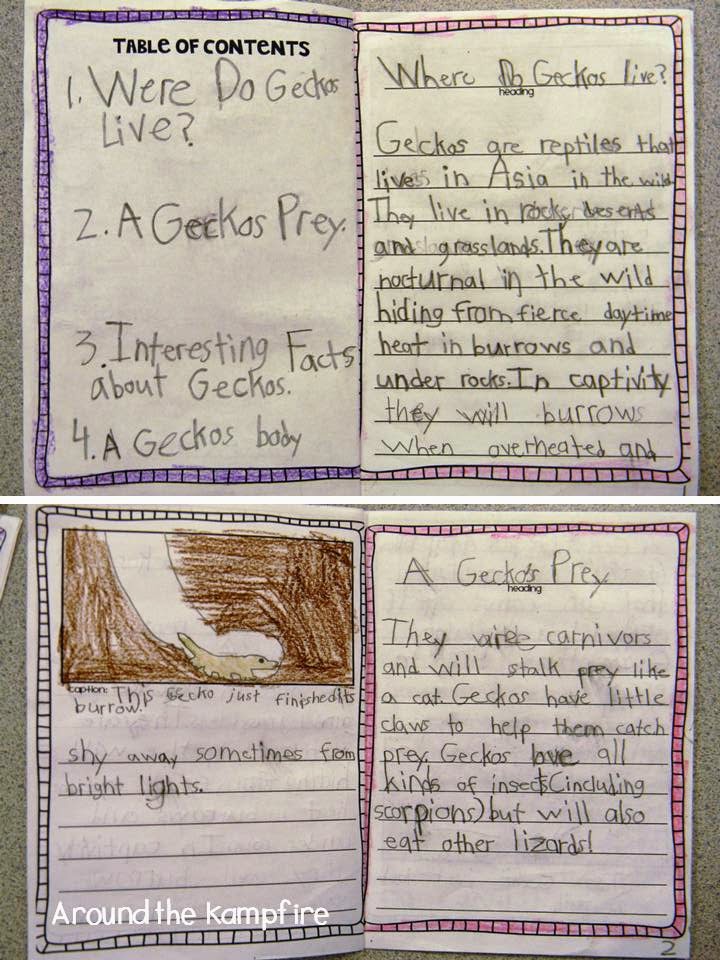 TABLE OF CONTENTS
1. Were Do Geckos
Live?
2. A Geckos Prey.
3. Interesting Facts
about Geckos.
4. A Geckos body
Where Do Geckos live?
heading
Geckos are reptiles that
live in Asia in the wild
They live in rocky deserts
and grasslands. They are
nocturnal in the wild
hiding from fierce daytime
heat in burrows and
under rocks. In captivity
they will burrows
when overheated and
caption: This Gecko just finished its
burrow.
shy away sometimes from
bright lights.
Around the Kampfire
A Gecko's Prey
heading
They are carnivors
and will stalk prey like
a cat. Geckos have little
claws to help them catch
prey. Geckos love all
kinds of insects (including
scorpions) but will also
eat other lizards!
2